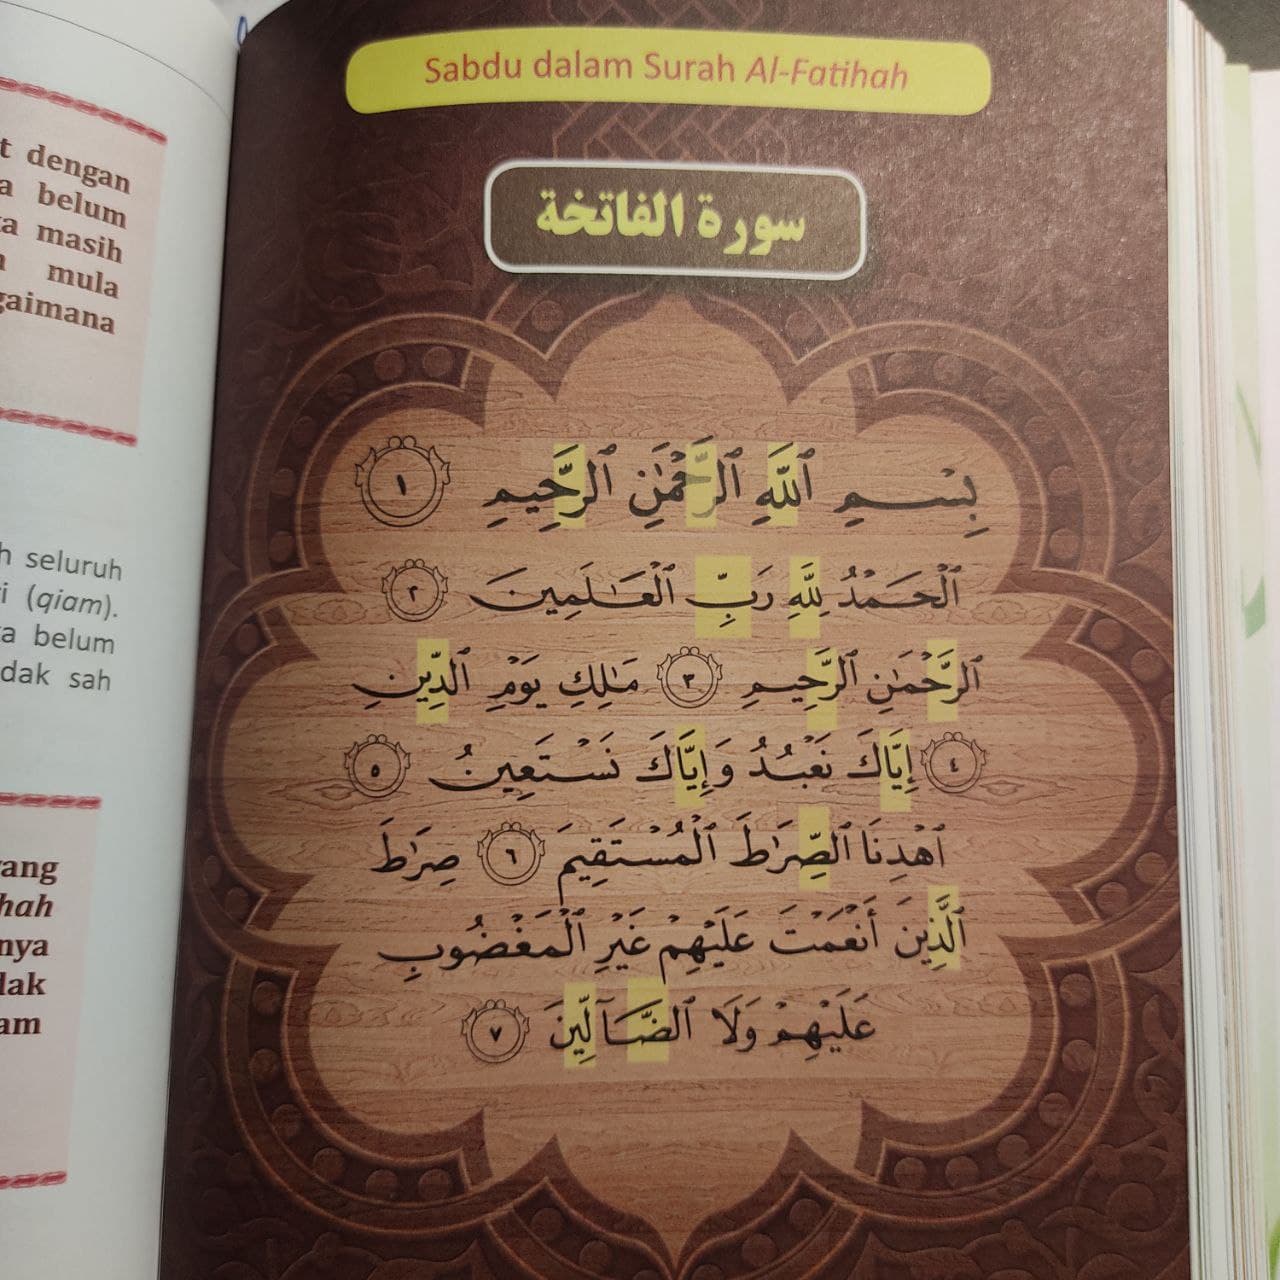 t dengan
a belum
masih
mula
gaimana
h seluruh
i (qiam).
a belum
dak sah
ang
hah
nya
dak
am
Sabdu dalam Surah Al-Fatihah
سورة الفاتخة
بِسْمِ ٱللَّهِ ٱلرَّحْمَٰنِ ٱلرَّحِيمِ ١
ٱلْحَمْدُ لِلَّهِ رَبِّ ٱلْعَٰلَمِينَ ٢
ٱلرَّحْمَٰنِ ٱلرَّحِيمِ ٣ مَٰلِكِ يَوْمِ ٱلدِّينِ
٤ إِيَّاكَ نَعْبُدُ وَإِيَّاكَ نَسْتَعِينُ ٥
ٱهْدِنَا ٱلصِّرَٰطَ ٱلْمُسْتَقِيمَ ٦ صِرَٰطَ
ٱلَّذِينَ أَنْعَمْتَ عَلَيْهِمْ غَيْرِ ٱلْمَغْضُوبِ
عَلَيْهِمْ وَلَا ٱلضَّآلِّينَ ٧